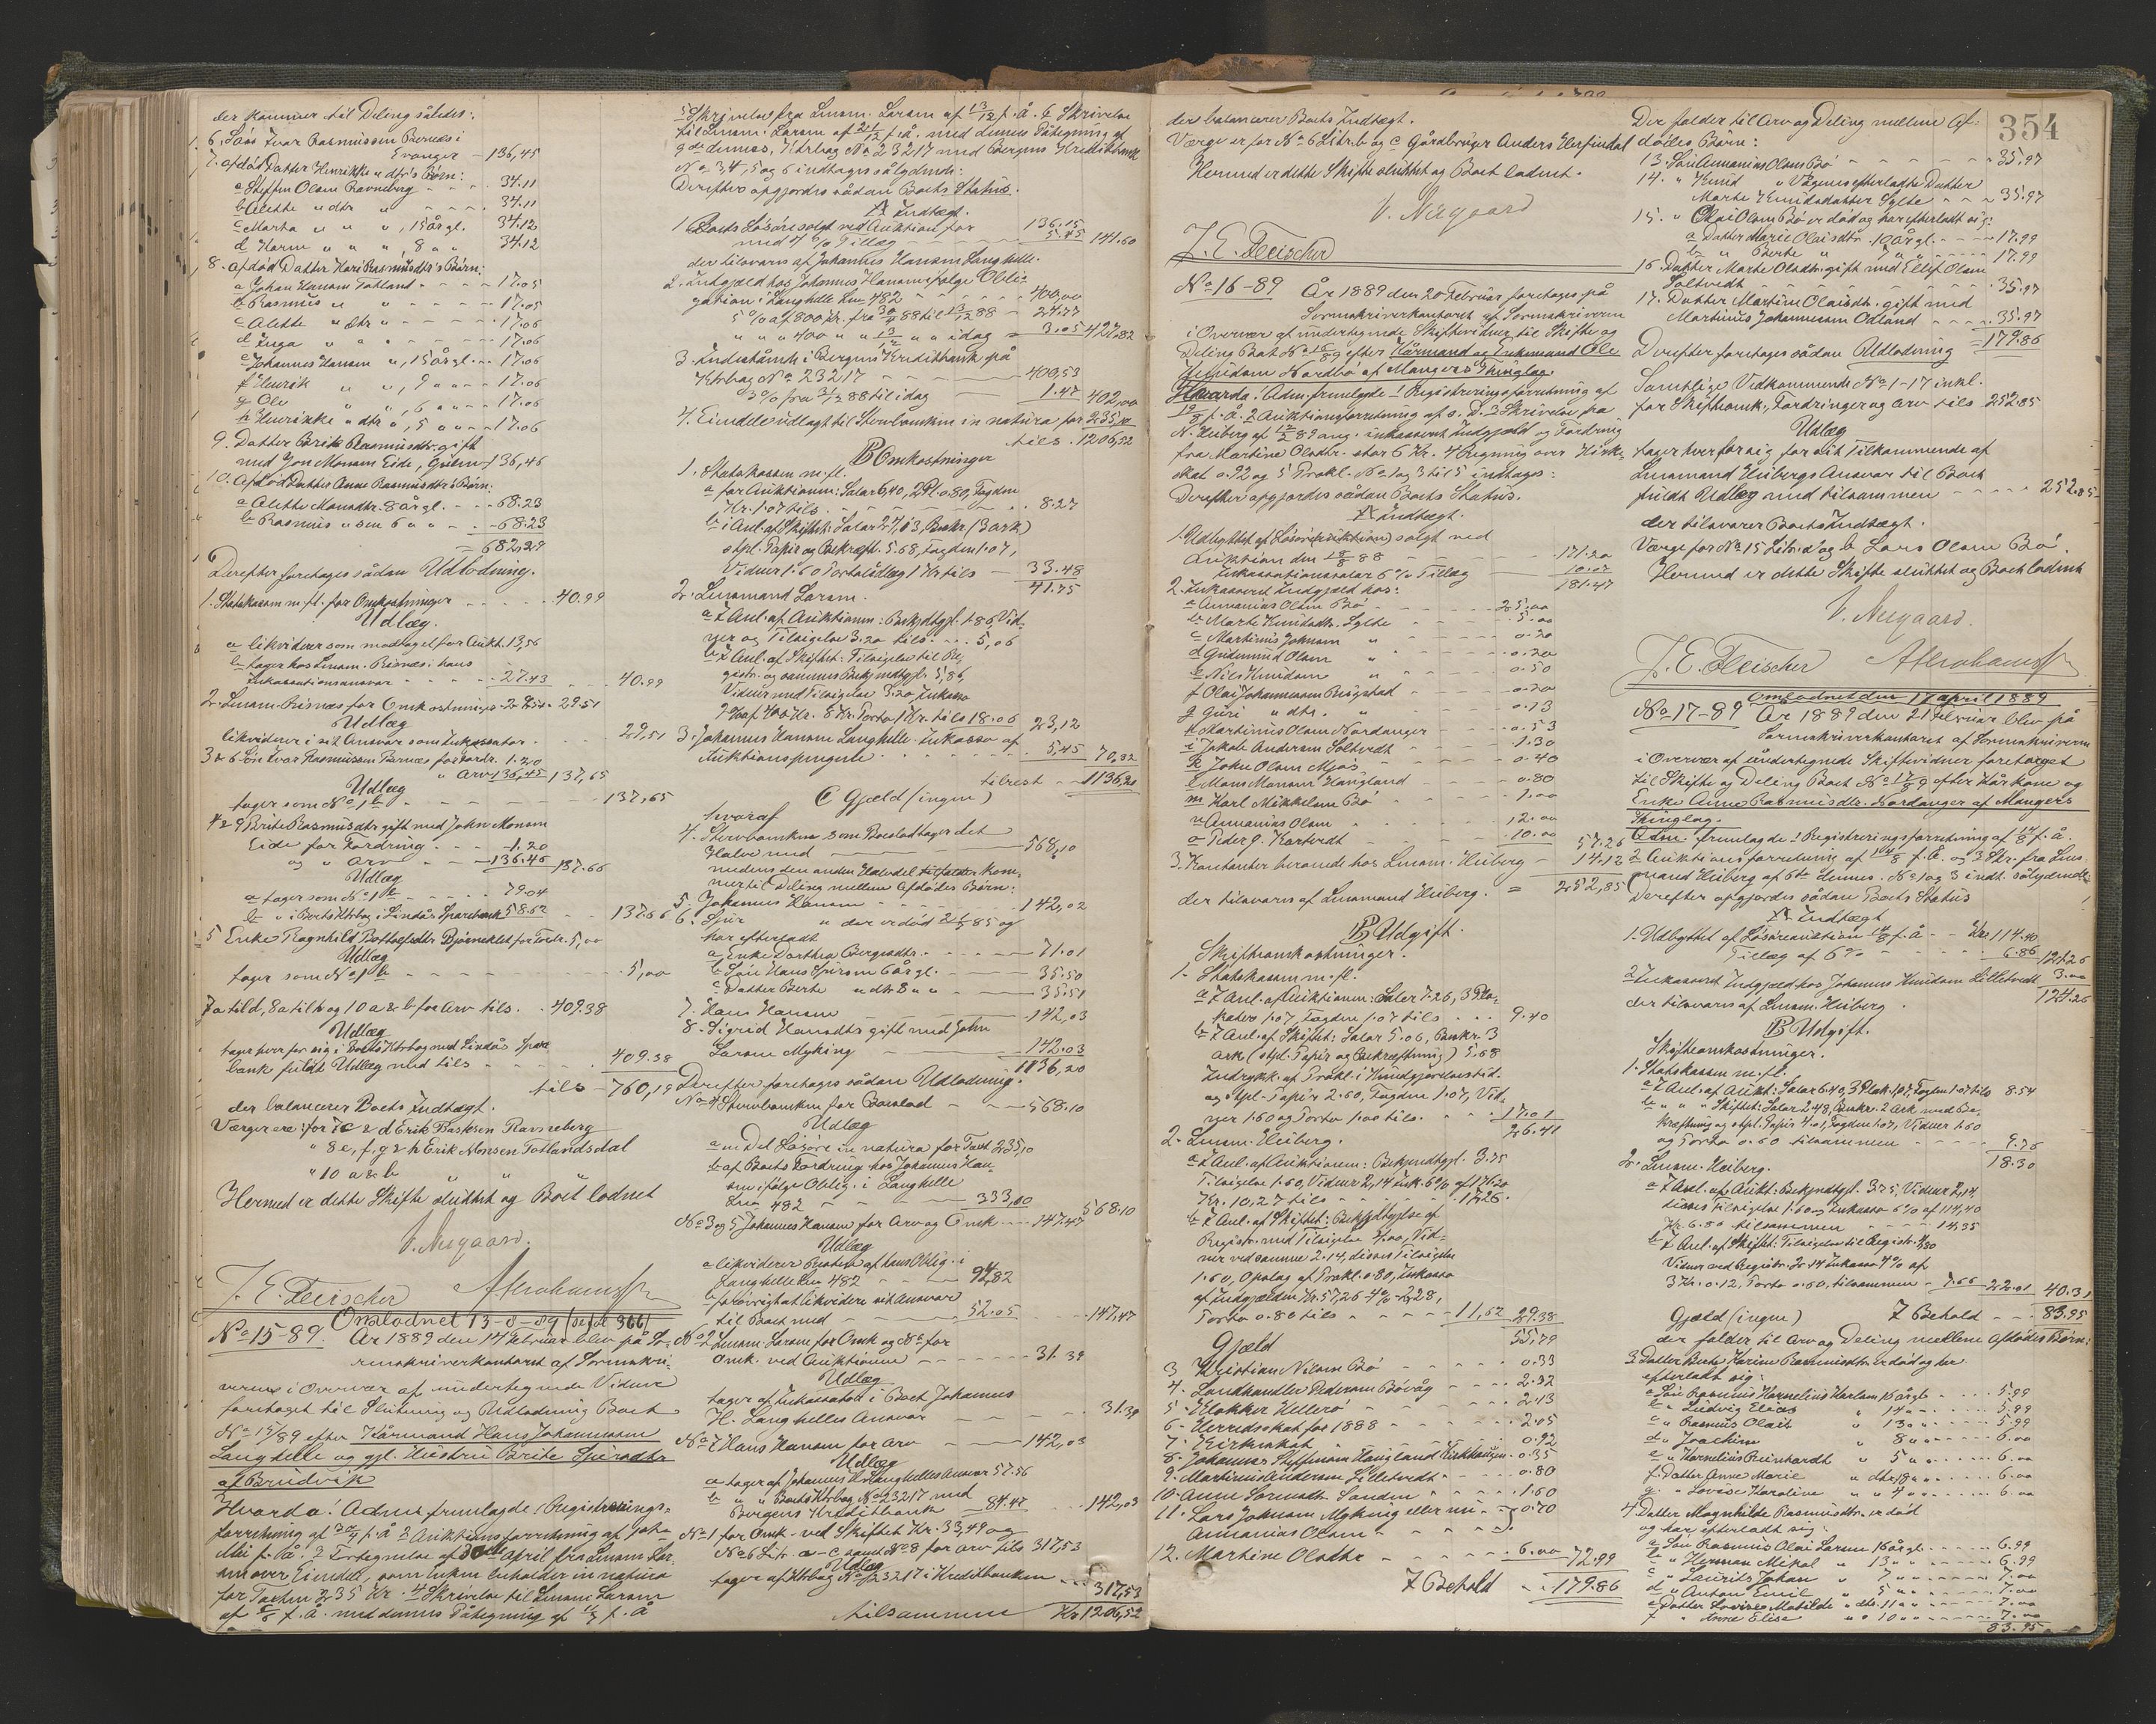 der kommer til Deling således:
6. Søns Ivar Rasmussen Bernæs i
Evanger - 136,45
7. afdød Datter Henrikke " dtr's Børn:
a Steffen Olsen Ravneberg - - - 34.11
b Alette " dtr " - - - 34.11
c Marta " " " , 15 årgl. 34.12
d Karen " " " 8 " " 34.12
8. afdød Datter Kari Rasmusdtr's Børn:
a Johan Hansen Totland - - - 17.05
b Rasmus " " - - - 17.05
c Alette " dtr " - - - 17.06
d Inga " " " - - - 17.06
e Johannes Hansen ", 15 årgl. - - 17.06
f Henrik " ", 9 " " - - 17.06
g Ole " ", 6 " " - - 17.06
h Henrikke " dtr ", 5 " " - - 17.06
9. Datter Brite Rasmusdtr. gift
med Jon Monsen Eide, 136,46
10. afdød Datter Anne Rasmusdtr's Børn:
a Alette Monsdtr. 8 årgl. - - 68.23
b Rasmus " sen 6 " " - - 68.23
= 682,29
Derefter foretages sådan Udlodning.
1. Statskassen m. fl. for Omkostninger - - - 40.99
Udlæg.
a likviderer som modtaget for Aukt. 13,56
b tager hos Lensm. Risnæs i hans
Inkassationsansvar - - - 27.43 - - 40.99
2. Lensm. Risnæs for Omkostninger - 29.51
Udlæg
likviderer i sit Ansvar som Inkassator - - - 29,51
3 & 6 Søn Ivar Rasmussen Bernæs for Fordr. 1.20
" Arv 136,45 137,65
Udlæg
tager som No 1 b - - - 137,65
4 & 9 Brite Rasmusdtr gift med John Monsen
Eide for Fordring - - 1.20
og " Arv - - 136.46 137.66
Udlæg
a tager som No 1 b - - - 79.04
b " i Boets Ktrbog i Lindås Sparebank 58.62 - - 137.66
5 Enke Ragnhild Bottolfsdtr Bjørneklet for Fordr. 5,00
Udlæg
tager som No 4 b - - - 5,00
7 a til d, 8 a til h og 10 a & b for Arv tils. - 409.38
Udlæg
tager hver for sig i Boets Ktrbog med Lindås Spare
bank fuldt Udlæg med tils - - - 409.38
tils - 760,19
der balancerer Boets Indtægt.
Værger ere: for 7 c & d Erik Ravneberg
" 8 e, f, g & h Erik Monsen Totlandsdal
" 10 a & b " "
Hermed er dette Skifte sluttet og Boet lodnet
V. Neegaard.
J. E. Fleischer
Omlodnet 13-8-89
No 15-89. År 1889 den 14 Februar blev på So-
renskriverkontoret af Sorenskri-
veren i Overvær af undertegnede Vidner
foretaget til Slutning og Udlodning Boet
No 15/89 efter Kårmand Hans Johannesen
Langhelle og gjl. Hustru Brite Sjursdtr
af Bruvik
Hvorda! Adm. fremlagde 1 Registrerings-
forretning af f. å. 2 Auktionsforretning af 
Mai f. å. 3 Fortegnelse af 30 April fra Lensm. Lar-
sen over Eiendele, som Enken beholder in natura
for Taxten 235 Kr. 4 Skrivelse til Lensm. Larsen
af f. å. med dennes Påtegning af f. å
5 Skrivelse fra Lensm. Larsen af 13/12 f. å. 6 Skrivelse
til Lensm. Larsen af 21/12 f. å. med dennes Påtegning af
9 ds dennes, Ktrbog No 23217 med Bergens Kreditbank
No 3, 4, 5 og 6 indtages sålydende:
Derefter opgjordes sådan Boets Status.
A Indtægt.
1. Boets Løsøre solgt ved Auktion for 136.15
med 4 % Tillæg - - - 5.45 141.60
der tilsvares af Johannes Hansen Langhelle.
2. Indgjæld hos Johannes Hansen ifølge Obli-
gation i Langhelle Lnr 482 - - - 400,00
5 % af 800 Kr. fra 88 til 88 - 24.77
" " " 400 " " " " idag = 3.05 427,82
3. Indestående i Bergens Kreditbank på
Ktrbog No 23217 - - - 400,53
3 % fra 88 til idag - 1.47 402,00
4. Eiendele udlagt til Stervboenken in natura for 235,10
tils. 1206,52
B Omkostninger
1. Statskassen m. fl.
a for Auktionen: Salær 6,40, 2 Pl. 0.80, Fogden
Kr. 1.07 tils. - - - 8.27
b i Anl. af Skiftet: Salær 27,13, Beskr. (3 ark)
stpl. Papir og Bekræft. 5.68, Fogden 1.07,
Vidner 1.60 Portoudlæg 1 Kr. tils - 33.48
41.75
2. Lensmand Larsen.
a I Anl. af Auktionen: Bekjendtgjl. 1.86, Vid-
ner og Tilsigelse 3.20 tils. - - 5,06
b I Anl. af Skiftet: Tilsigelse til Re-
gistr. og sammes Bekjendtgjl. 5.86,
Vidner med Tilsigelse 3.20, Inkasso
2 % af 400 Kr. 8 Kr. Porto 1 Kr. tils 18.06 23,12
3. Johannes Hansen Langhelle Inkasso af
Auktionspengene - - - 5.45 70,32
tilrest - 1136,20
C Gjæld (ingen)
hvoraf
4. Stervboenken som Boeslod tager det
Halve med - - - 568,10
medens den anden Halvdel kom-
mer til Deling mellem Afdødes Børn:
5. Johannes Hansen - - - 142,02
6. Sjur " der er død 85 og
har efterladt
a Enke Dorthea Bergesdtr. - - - 71.01
b Søn Hans Sjursen 6 årgl. - - 35.50
c Datter Berte " dtr 8 " " - - 35.51
7. Hans Hansen - - - 142,03
8. Sigrid Hansdtr gift med John
Larsen Myking - - - 142.03
1136,20
Derefter foretages sådan Udlodning.
No 4 Stervboenken for Boeslod - - - 568.10
Udlæg
a en Del Løsøre in natura for Taxt 235,10
b af Boets Fordring hos Johannes Han-
sen ifølge Oblig. i Langhelle
Lnr 482 - - - 333,00 568.10
No 3 og 5 Johannes Hansen for Arv og Omk. - - 147.47
Udlæg
a likviderer Resten af hans Oblig. i
Langhelle Lnr 482 - - - 94,82
b forøvrigt at likvidere sit Ansvar
til Boet med - - - 52.65 - - 147,47
No 2 Lensm. Larsen for Omk og No for
Omk. ved Auktionen - - - 31.39
Udlæg
tager af Inkassaten i Boet Johannes
H. Langhelles Ansvar - - - 31.39
No 7 Hans Hansen for Arv - - - 142,03
Udlæg
a tager af Johannes H. Langhelles Ansvar 57.56
b " " Boets Ktrbog No 23217 med
Bergens Kreditbank - 84.47 - - 142,03
No 1 for Omk. ved Skiftet Kr. 33,49 og
No 6 Litr. a-c samt No 8 for Arv tils 317,53
Udlæg
tager af Ktrbog No 23217 i Kreditbanken - - 317,53
tilsammen Kr 1206,52
der balancerer Boets Indtægt.
Værge er for No 6 Litr. b og c Gårdbruger Anders Herfindal
Hermed er dette Skifte sluttet og Boet lodnet.
V. Neegaard
J. E. Fleischer
No 16-89 År 1889 den 20 Februar foretages på
Sorenskriverkontoret af Sorenskriveren
i Overvær af undertegnede Skiftevidner til Skifte og
Deling Boet No 16/89 efter Kårmand og Enkemand Ole
Nordbø af Mangers Thinglag.
Hvorda! Adm. fremlagde 1 Registreringsforretning af
f. å. 2 Auktionsforretning af s. D. 3 Skrivelse fra
N. Heiberg af 89 ang. inkasseret Indgjæld og Fordring
fra Martine Olsdtr. stor 6 Kr. 4 Regning over Kirke-
skat 0.92 og 5 Prokl. No 1 og 3 til 5 indtages:
Derefter opgjordes sådan Boets Status.
A Indtægt.
1. Udbyttet af Løsøre solgt ved
Auktion den 88 - - - 171.20
Inkassationssalær 6 % Tillæg - 10.27
181.47
2. Inkasseret Indgjæld hos:
a Ananias Olsen Bø - - - 25,00
b Marte Knudsdtr. Sylte - - - 5.00
c Martinus Johnsen " - - - 0.20
d Gudmund Olsen " - - - 0.20
e Nils Knudsen " - - - 0.50
f Olai Johannesen Bergstad - - 0.20
g Guri " dtr. " - - 0.13
h Martinus Olsen Nordanger - - 0.53
i Jakob Andersen Soltvedt - - 1.30
k John Olsen Mjøs - - 0.40
l Mons Monsen Haugland - - 0.80
m Karl Mikkelsen Bø - - 1.00
n Ananias Olsen - - 12.00
o Peder J. Kartvedt - - 10.00 57.26
3. Kontanter beroende hos Lensm. Heiberg - 14.12
der tilsvares af Lensmand Heiberg. = 252,85
B Udgift.
Skifteomkostninger.
1. Statskassen m. fl.
a I Anl. af Auktionen: Salær 7.26, 3 Pla-
kater 1.07, Fogden 1.07 tils - - 9.40
b I Anl. af Skiftet: Salær 5.06, Beskr. 3
ark (stpl. Papir og Bekræftning) 5.68
Indrykk. af Prokl. i Kundgjørelsestid.
og stpl. Papir 2.60, Fogden 1.07, Vid-
ner 1.60 og Porto 1.00 tils. - - 17.01
26.41
2. Lensm. Heiberg.
a I Anl. af Auktionen: Bekjendtgjl. 3.75
Tilsigelse 1.60, Vidner 2,14 Ink. 6 % af 171.20
Kr. 10,27 tils - - - 17.26.
b I Anl. af Skiftet: Bekjendtgjørelse af
Registr. med Tilsigelse 4.00, Vid-
ner ved samme 2.14, disses Tilsigelse
1.60, Opslag af Prokl. 0.80, Inkasso
af Indgjælden Kr. 57,26 4 % 2,28,
Porto 0.80 tils - - - 11,62 29.38
55.79
Gjæld
3 Kristian Nilsen Bø - - - 0.33
4. Landhandler Pedersen Bøvåg - - 2.92
5. Klokker Hellesø - - - 2.13
6. Herredsskat for 1888 - - - 2.05
7. Kirkeskat - - - 0.92
8. Johannes Steffensen Haugland - - 0.35
9. Martinus Andersen Lilletvedt - - 0.80
10. Anne Larsdtr. Sanden - - 1.60
11. Lars Johnsen Myking eller nu
Ananias Olsen - - } 0.70
12. Martine Olsdtr - - - 6.00 72,99
I Behold - - 179.86
354
Der falder til Arv og Deling mellem Af-
dødes Børn:
13. Søn Ananias Olsen Bø - - - 35.97
14. " Knud " Vågenes efterladte Datter
Marte Knudsdatter Sylte - - 35.97
15. " Olai Olsen Bø er død og har efterladt sig:
a Datter Marie Olaisdtr. 10 årgl. - - 17.99
b " Berte " 7 " " - - 17.99
16. Datter Marte Olsdtr. gift med Ellif Olsen
Soltvedt - - - 35.97
17. Datter Martine Olaisdtr. gift med
Martinus Johannesen Odland - - 35.97
= 179.86
Derefter foretages sådan Udlodning
Samtlige Vedkommende No 1-17 inkl.
for Skifteomk., Fordringer og Arv tils 252.85
Udlæg
tager hver for sig for sit Tilkommende af
Lensmand Heibergs Ansvar til Boet
fuldt Udlæg med tilsammen - - - 252.85
der tilsvarer Boets Indtægt.
Værge for No 15 Litr. a og b Lars Olsen Bø.
Hermed er dette Skifte sluttet og Boet lodnet
V. Neegaard.
J. E. Fleischer
Omlodnet den 17 april 1889
No 17-89 År 1889 den 21 Februar blev på
Sorenskriverkontoret af Sorenskriveren
i Overvær af undertegnede Skiftevidner foretaget
til Skifte og Deling Boet No 17/89 efter Kårkone og
Enke Anne Rasmusdtr. Nordanger af Mangers
Thinglag.
Adm. fremlagde 1 Registreringsforretning af f. å.
2 Auktionsforretning af f. å. og 3 Skr. fra Lens-
mand Heiberg af 6te dennes. No 1 og 3 indt. sålydende
Derefter opgjordes sådan Boets Status
A Indtægt
1. Udbyttet af Løsøreauktion f. å - - Kr. 114.40
Tillæg af 6 % - - - 6.86 121.26
2 Inkasseret Indgjæld hos Johannes Knudsen Lilletvedt 3.00
der tilsvares af Lensm. Heiberg. 124.26
B Udgift.
Skifteomkostninger.
1. Statskassen m. fl.
a I Anl. af Aukt: Salær 6.40, 3 Plak. 1.07, Fogden 1.07 tils 8.54
b " " " Skiftet: Salær 2.48, Beskr. 2 Ark med Be-
kræftning og stpl. Papir 4.01, Fogden 1.07, Vidner 1.60
og Porto 0.60 tilsammen - - - 9.76
18.30
2. Lensm. Heiberg.
a I Anl. af Aukt: Bekjendtgjl. 3.75, Vidner 2,14
disses Tilsigelse 1.60 og Inkasso 6 % af 114,40
Kr 6.86 tilsammen - - - 14.35
b I Anl. af Skiftet: Tilsigelse til Registr.
Vidner ved Registr. 2.14 Inkasso 4 % af
3 Kr. 0.12, Porto 0.60, tilsammen - 7.66 22.01 40.31
Gjæld (ingen) I Behold - - 83.95
der falder til Arv og Deling mellem Afdødes Børn:
3. Datter Berte Karine Rasmusdtr. er død og har
efterladt sig:
a Søn Rasmus Kornelius Karlsen 16 årgl. - - 5.99
b " Ludvig Elias " 14 " " - - 5.99
c " Rasmus Olai " 13 " " - - 5.99
d " Joachim " 8 " " - - 6.00
e " Kornelius Reinhardt " 5 " " - - 6.00
f Datter Anne Marie " dtr 18 " " - - 6.00
g " Lovise Karoline " " 4 " " - - 6.00
4. Datter Magnhilde Rasmusdtr. er død
og har efterladt sig:
a Søn Rasmus Olai Larsen 16 årgl. - - 6.99
b " Herman Mikal " 13 " " - - 6.99
c " Laurits Johan " 7 " " - - 7.00
d " Anton Emil " 5 " " - - 7.00
e Datter Lovise Matilde " dtr. 11 " " - - 7.00
f " Anne Elise " " 10 " " - - 7.00
83.95